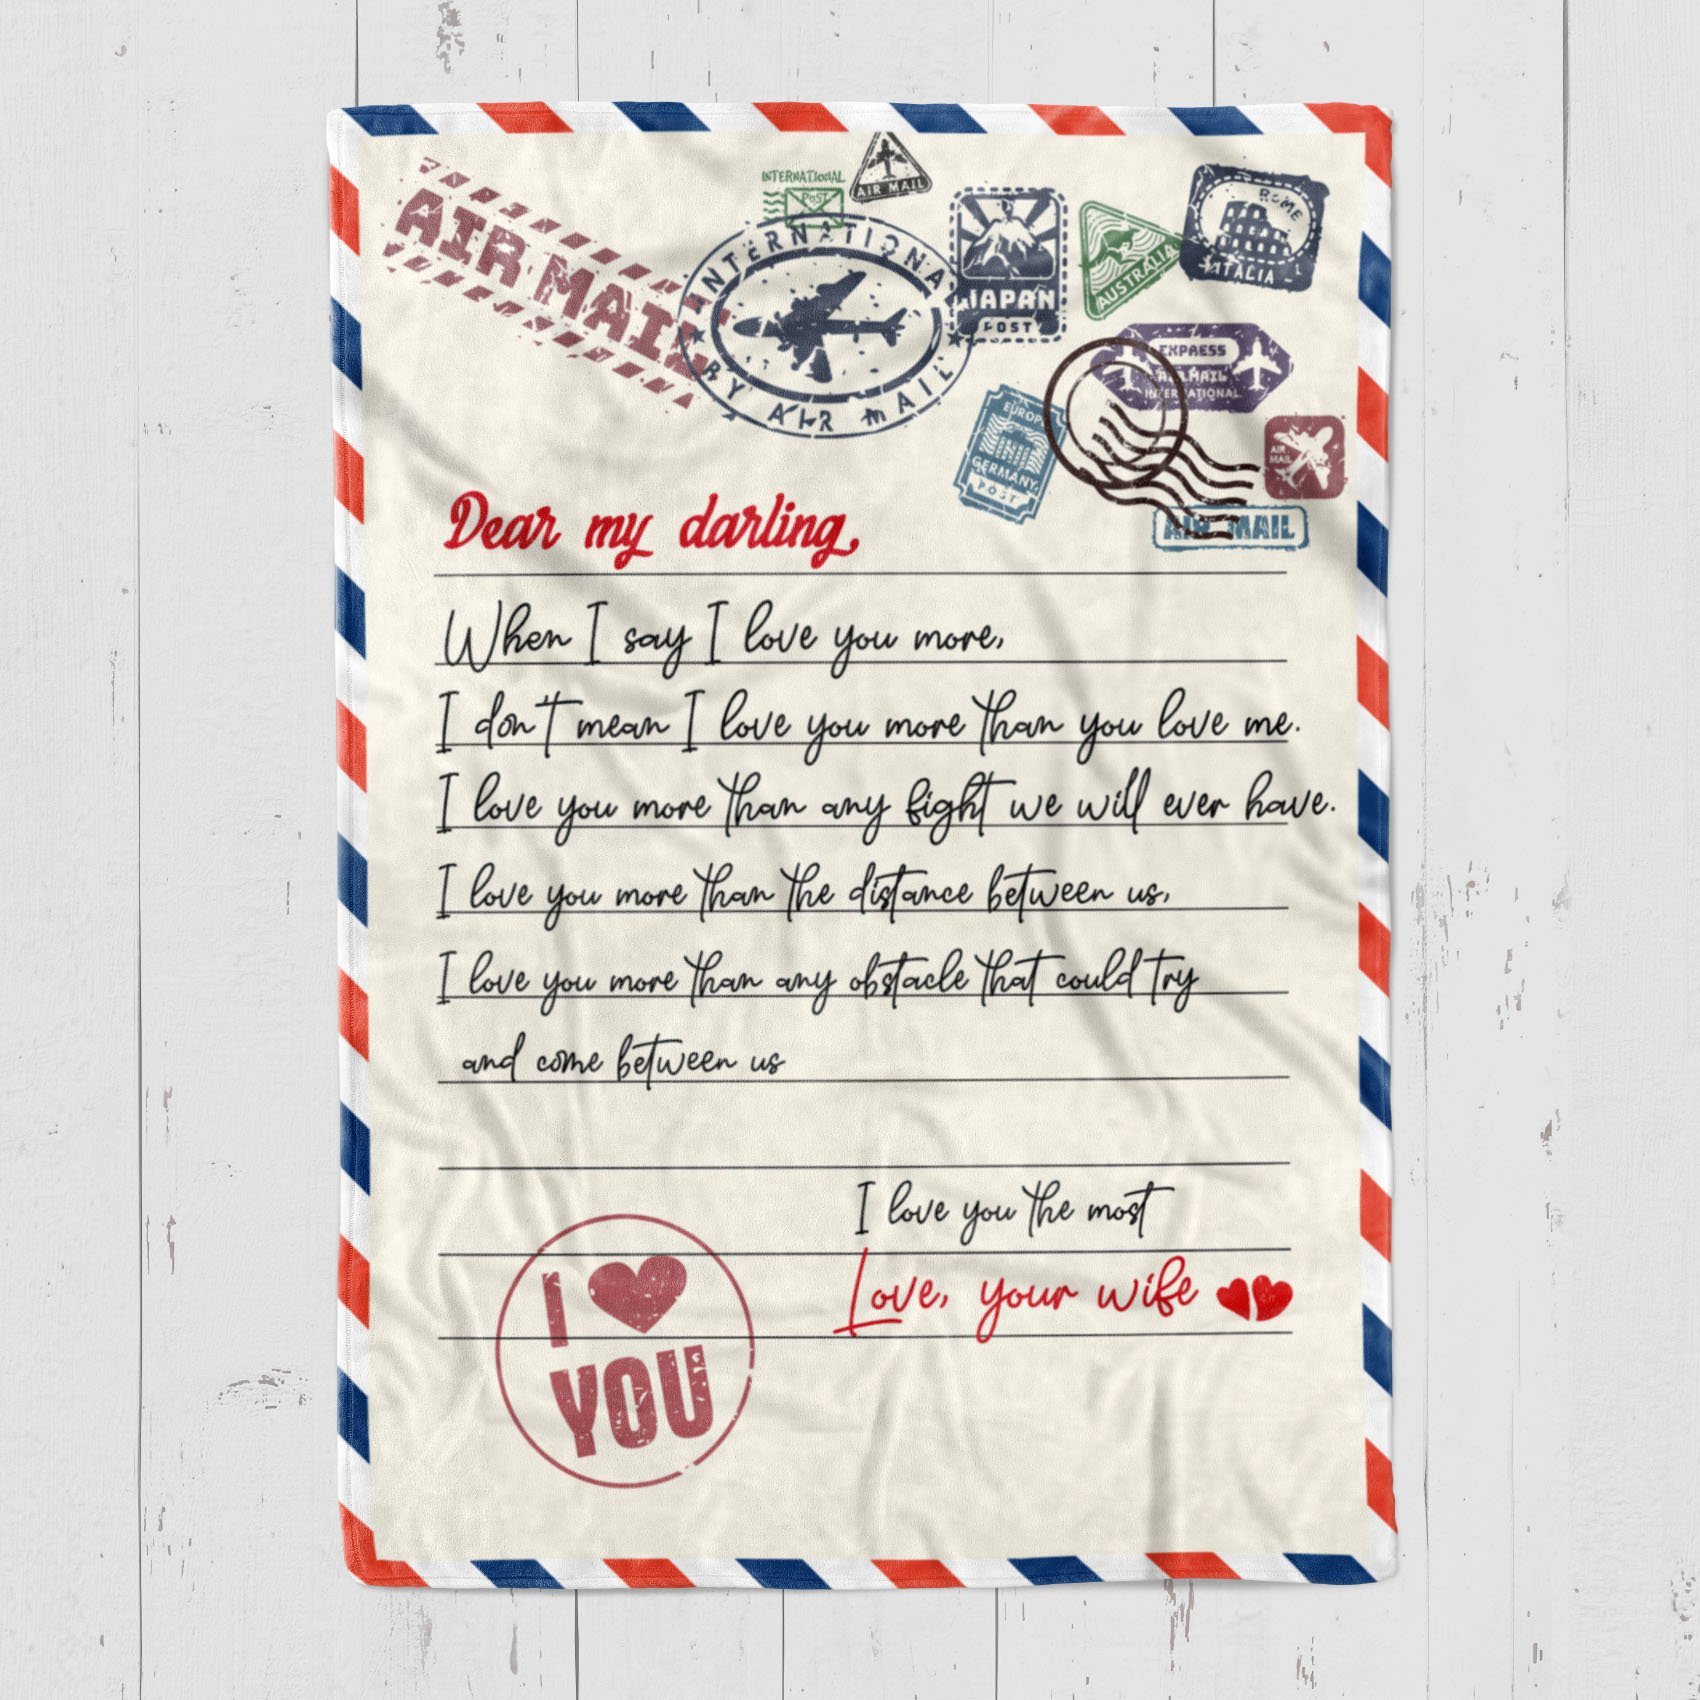 AIR MAIL
INTERNATIONAL
POST
AIR MAIL
INTERNATIONAL
BY AIR MAIL
JAPAN
POST
AUSTRALIA
ROME
ITALIA
EXPRESS
AIR MAIL
INTERNATIONAL
EUROPE
GERMANY
POST
AIR
MAIL
AIR MAIL
Dear my darling,
When I say I love you more,
I don't mean I love you more than you love me.
I love you more than any fight we will ever have.
I love you more than the distance between us,
I love you more than any obstacle that could try
and come between us
I love you the most
Love, your wife
I
YOU